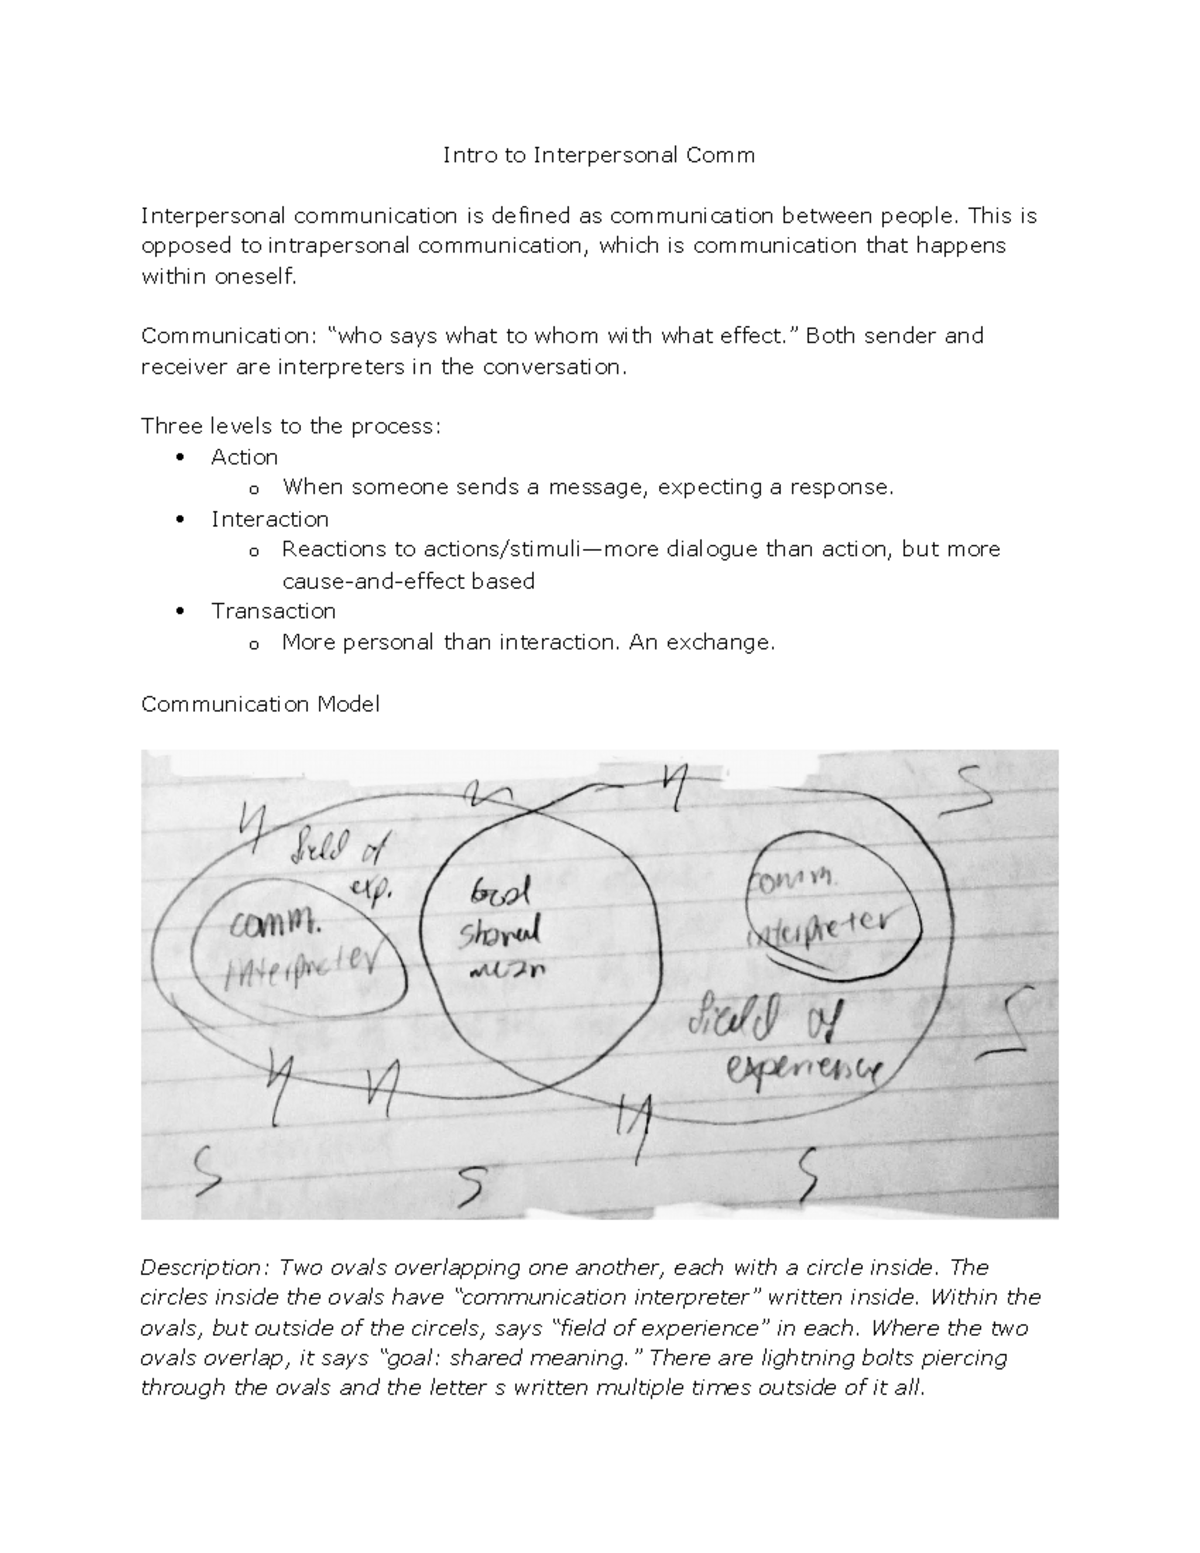 Intro to Interpersonal Comm
Interpersonal communication is defined as communication between people. This is
opposed to intrapersonal communication, which is communication that happens
within oneself.
Communication: “who says what to whom with what effect.” Both sender and
receiver are interpreters in the conversation.
Three levels to the process:
• Action
o When someone sends a message, expecting a response.
• Interaction
o Reactions to actions/stimuli—more dialogue than action, but more
cause-and-effect based
• Transaction
o More personal than interaction. An exchange.
Communication Model
S
field of
exp.
comm.
interpreter
goal
shared
mean
comm.
interpreter
field of
experience
S
S
S
S
Description: Two ovals overlapping one another, each with a circle inside. The
circles inside the ovals have “communication interpreter” written inside. Within the
ovals, but outside of the circels, says “field of experience” in each. Where the two
ovals overlap, it says “goal: shared meaning.” There are lightning bolts piercing
through the ovals and the letter s written multiple times outside of it all.